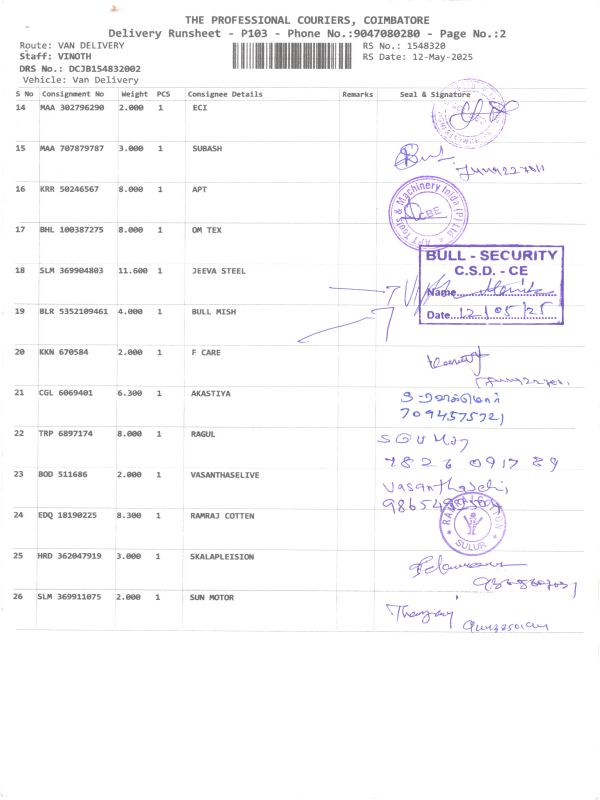 THE PROFESSIONAL COURIERS, COIMBATORE
Delivery Runsheet - P103 - Phone No.:9047080280 - Page No.:2
Route: VAN DELIVERY RS No.: 1548320
Staff: VINOTH RS Date: 12-May-2025
DRS No.: DCJB154832002
Vehicle: Van Delivery
S No Consignment No Weight PCS Consignee Details Remarks Seal & Signature
14 MAA 302796290 2.000 1 ECI
15 MAA 707879787 3.000 1 SUBASH
16 KRR 50246567 8.000 1 APT
APT Tools & Machinery Inida (P) Ltd
CBE
17 BHL 100387275 8.000 1 OM TEX
BULL - SECURITY
C.S.D. - CE
18 SLM 369904803 11.600 1 JEEVA STEEL
Name
19 BLR 5352109461 4.000 1 BULL MISH
Date 12/05/25
20 KKN 670584 2.000 1 F CARE
21 CGL 6069401 6.300 1 AKASTIYA
7094575721
22 TRP 6897174 8.000 1 RAGUL
7826 0917 89
23 BOD 511686 2.000 1 VASANTHASELIVE
24 EDQ 18190225 8.300 1 RAMRAJ COTTEN
RAMRAJ COTTON
SULUR
25 HRD 362047919 3.000 1 SKALAPLEISION
26 SLM 369911075 2.000 1 SUN MOTOR